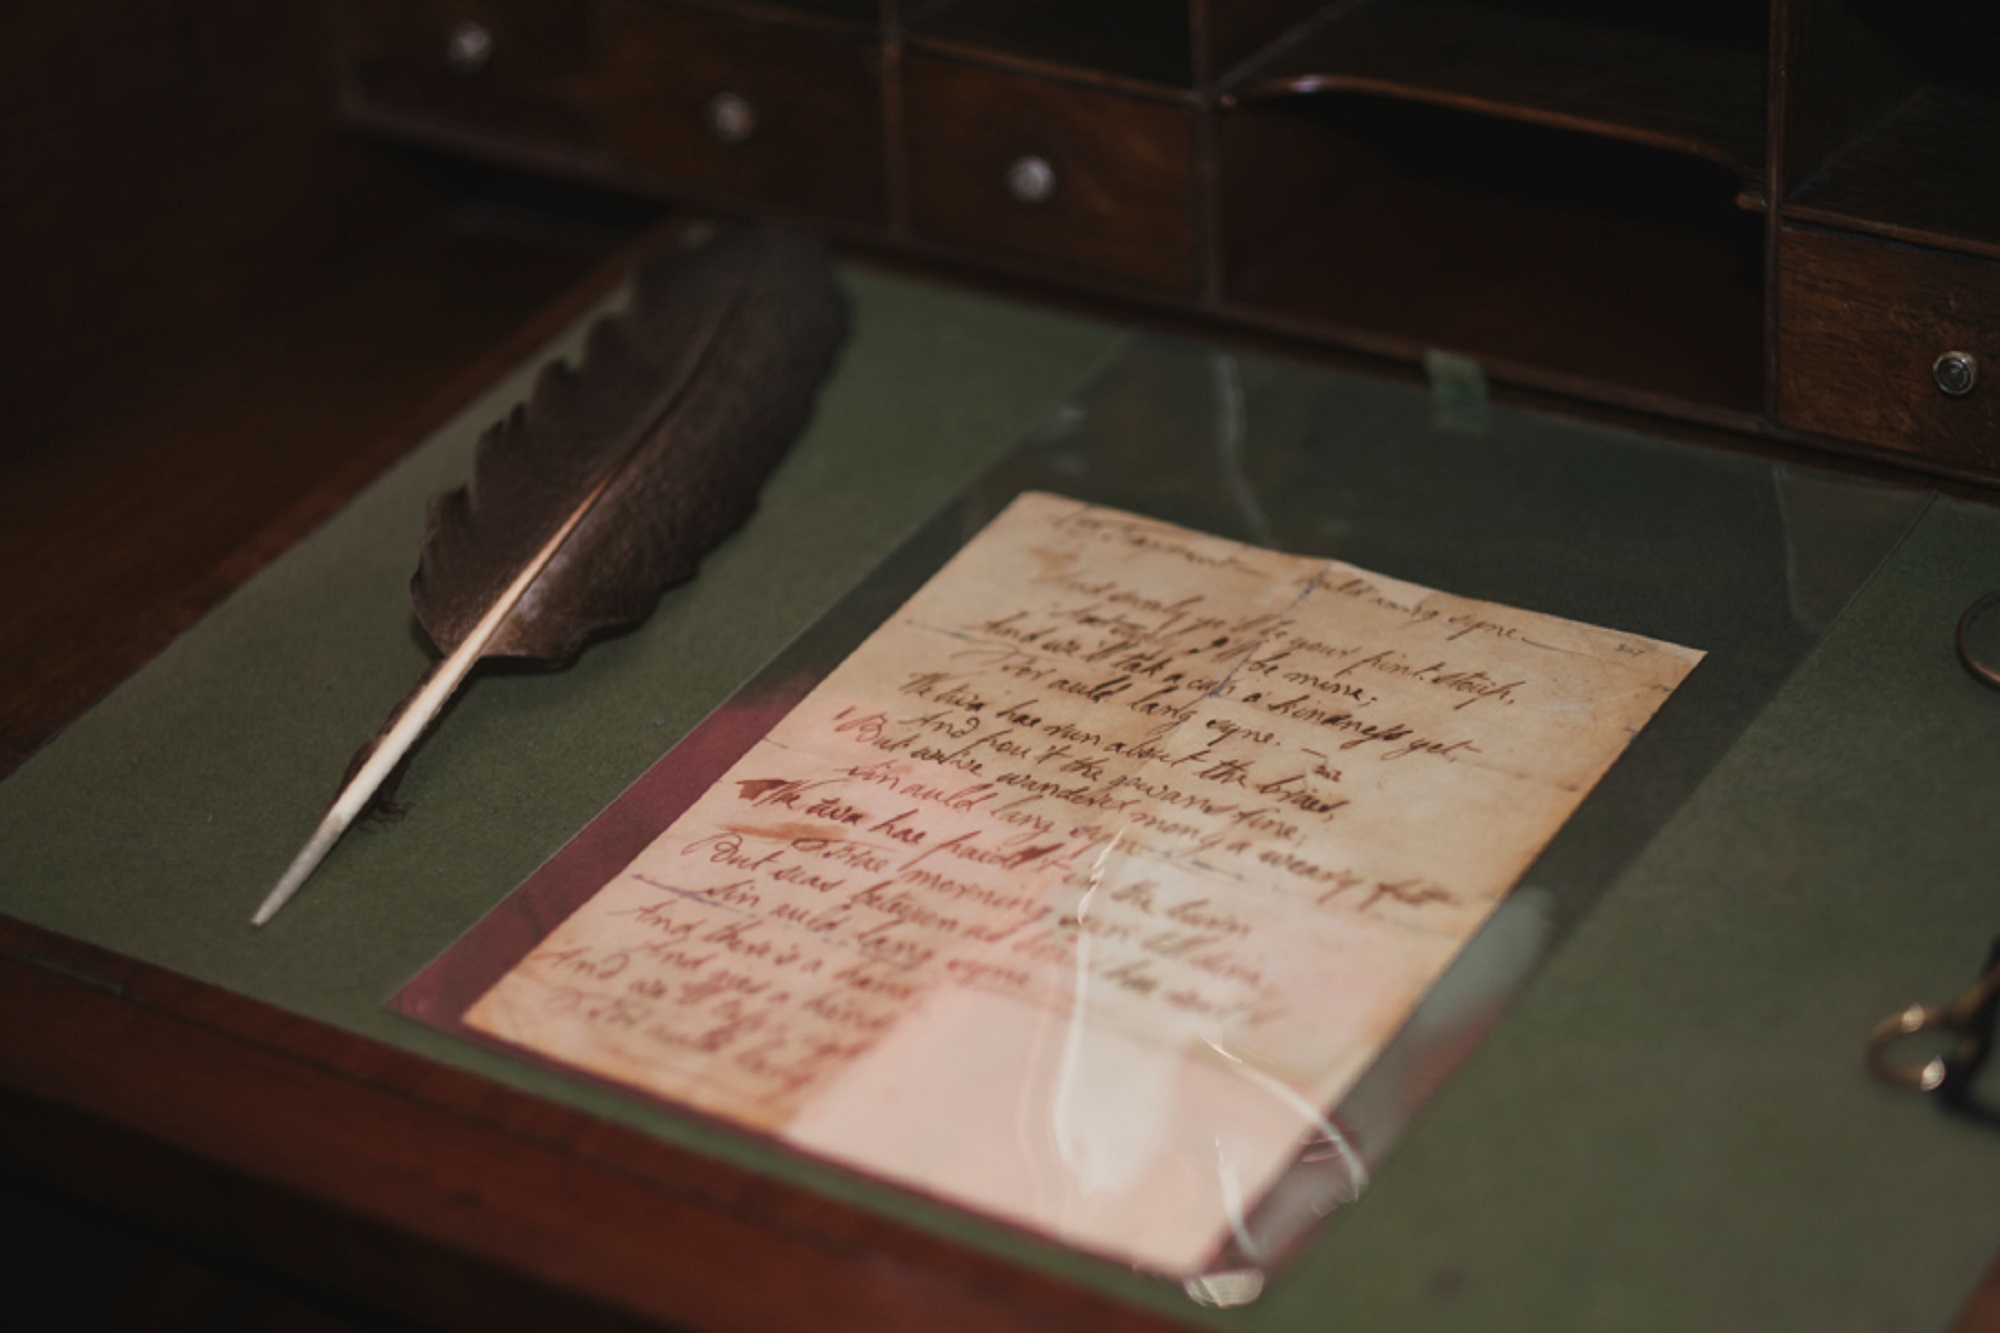 auld lang syne
307
And surely ye'll be your pint-stoup,
And surely I'll be mine;
And we'll tak a cup o' kindness yet
For auld lang syne. —
We twa hae run about the braes,
And pou't the gowans fine;
But we've wander'd mony a weary fitt
Sin auld lang syne
We twa hae paidl't in the burn
Frae morning sun till dine
But seas between us braid hae roar'd
Sin auld lang syne
And there's a hand
And gies a hand
And we'll tak
For auld lang